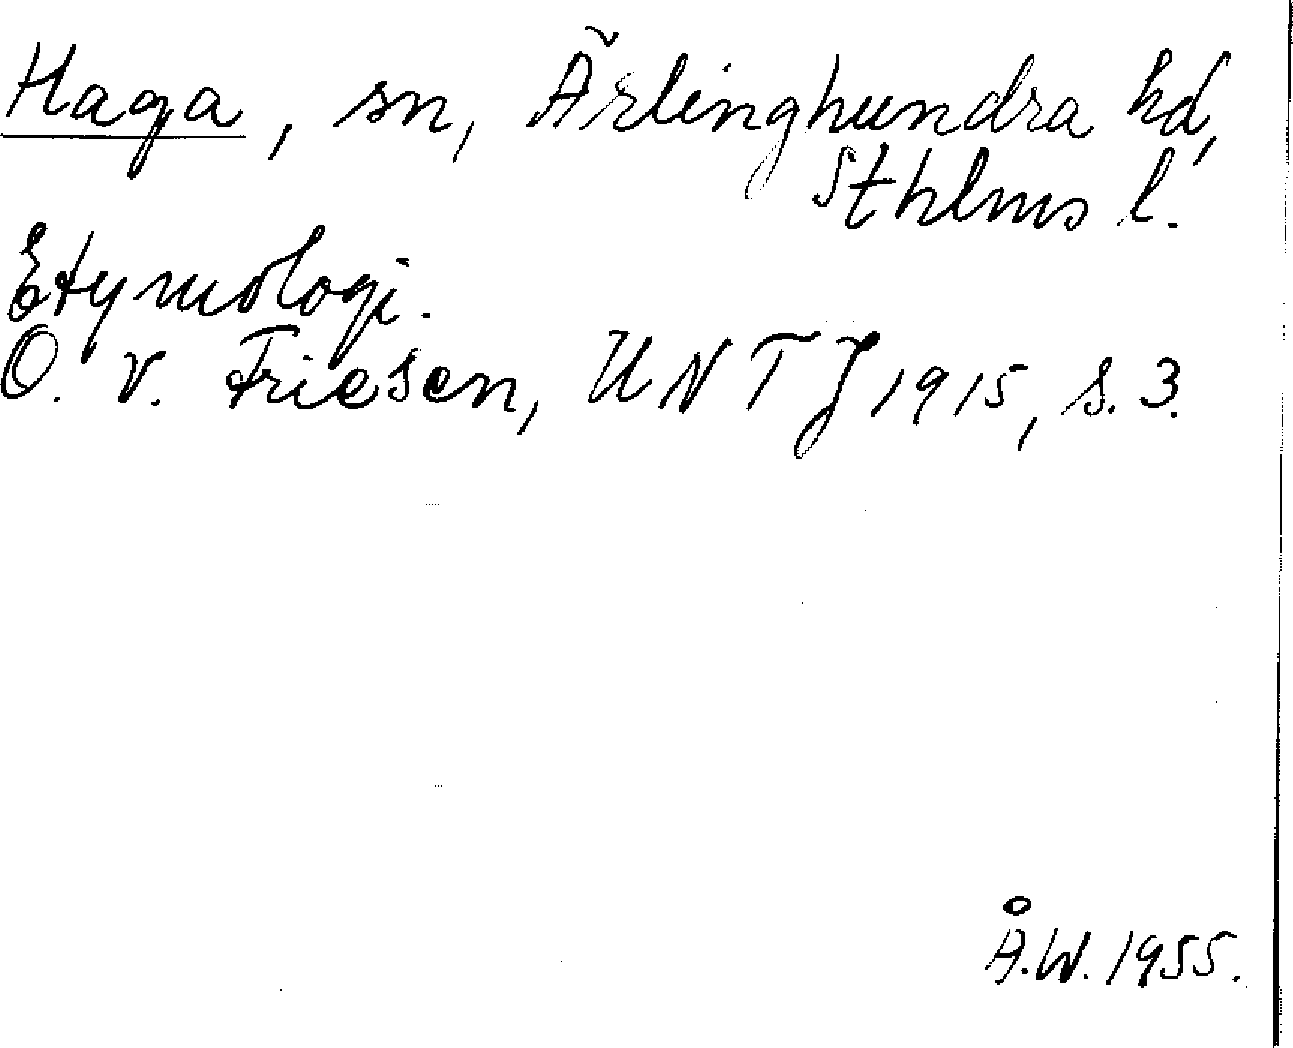 Haga, sn, Ärlinghundra hd,
Sthlms l.
Etymologi.
O. v. Friesen, UNTJ 1915, s. 3.
Å.W. 1955.